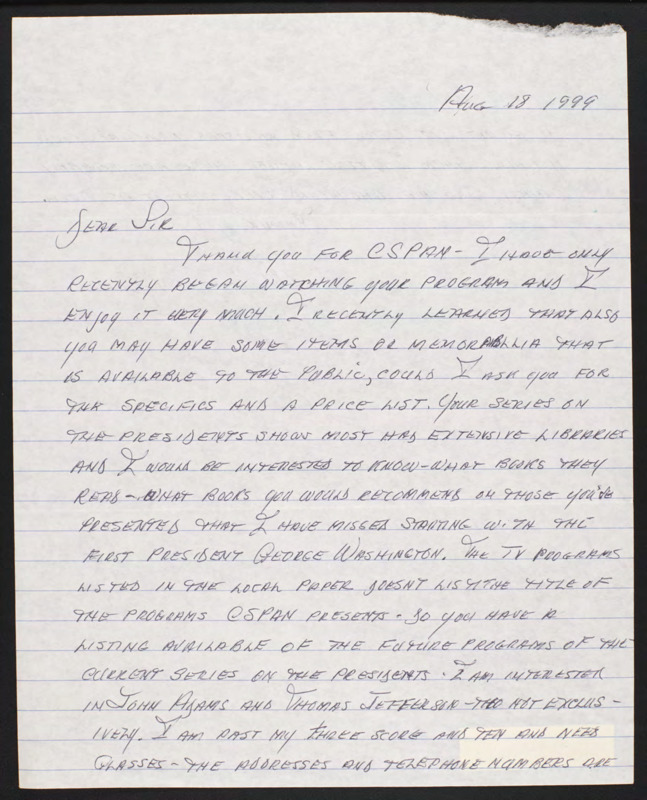 AUG 18 1999
DEAR SIR
THANK YOU FOR CSPAN - I HAVE ONLY
RECENTLY BEGAN WATCHING YOUR PROGRAM AND I
ENJOY IT VERY MUCH. I RECENTLY LEARNED THAT ALSO
YOU MAY HAVE SOME ITEMS OR MEMORABLLIA THAT
IS AVAILABLE TO THE PUBLIC, COULD I ASK YOU FOR
THE SPECIFICS AND A PRICE LIST. YOUR SERIES ON
THE PRESIDENTS SHOWS MOST HAD EXTENSIVE LIBRARIES
AND I WOULD BE INTERESTED TO KNOW - WHAT BOOKS THEY
READ - WHAT BOOKS YOU WOULD RECOMMEND ON THOSE YOU'VE
PRESENTED THAT I HAVE MISSED STARTING WITH THE
FIRST PRESIDENT GEORGE WASHINGTON. THE TV PROGRAMS
LISTED IN THE LOCAL PAPER DOESNT LIST THE TITLE OF
THE PROGRAMS CSPAN PRESENTS - DO YOU HAVE A
LISTING AVAILABLE OF THE FUTURE PROGRAMS OF THE
CURRENT SERIES ON THE PRESIDENTS. I AM INTERESTED
IN JOHN ADAMS AND THOMAS JEFFERSON - THO NOT EXCLUS -
IVELY. I AM PAST MY THREE SCORE AND TEN AND NEED
GLASSES - THE ADDRESSES AND TELEPHONE NUMBERS ARE